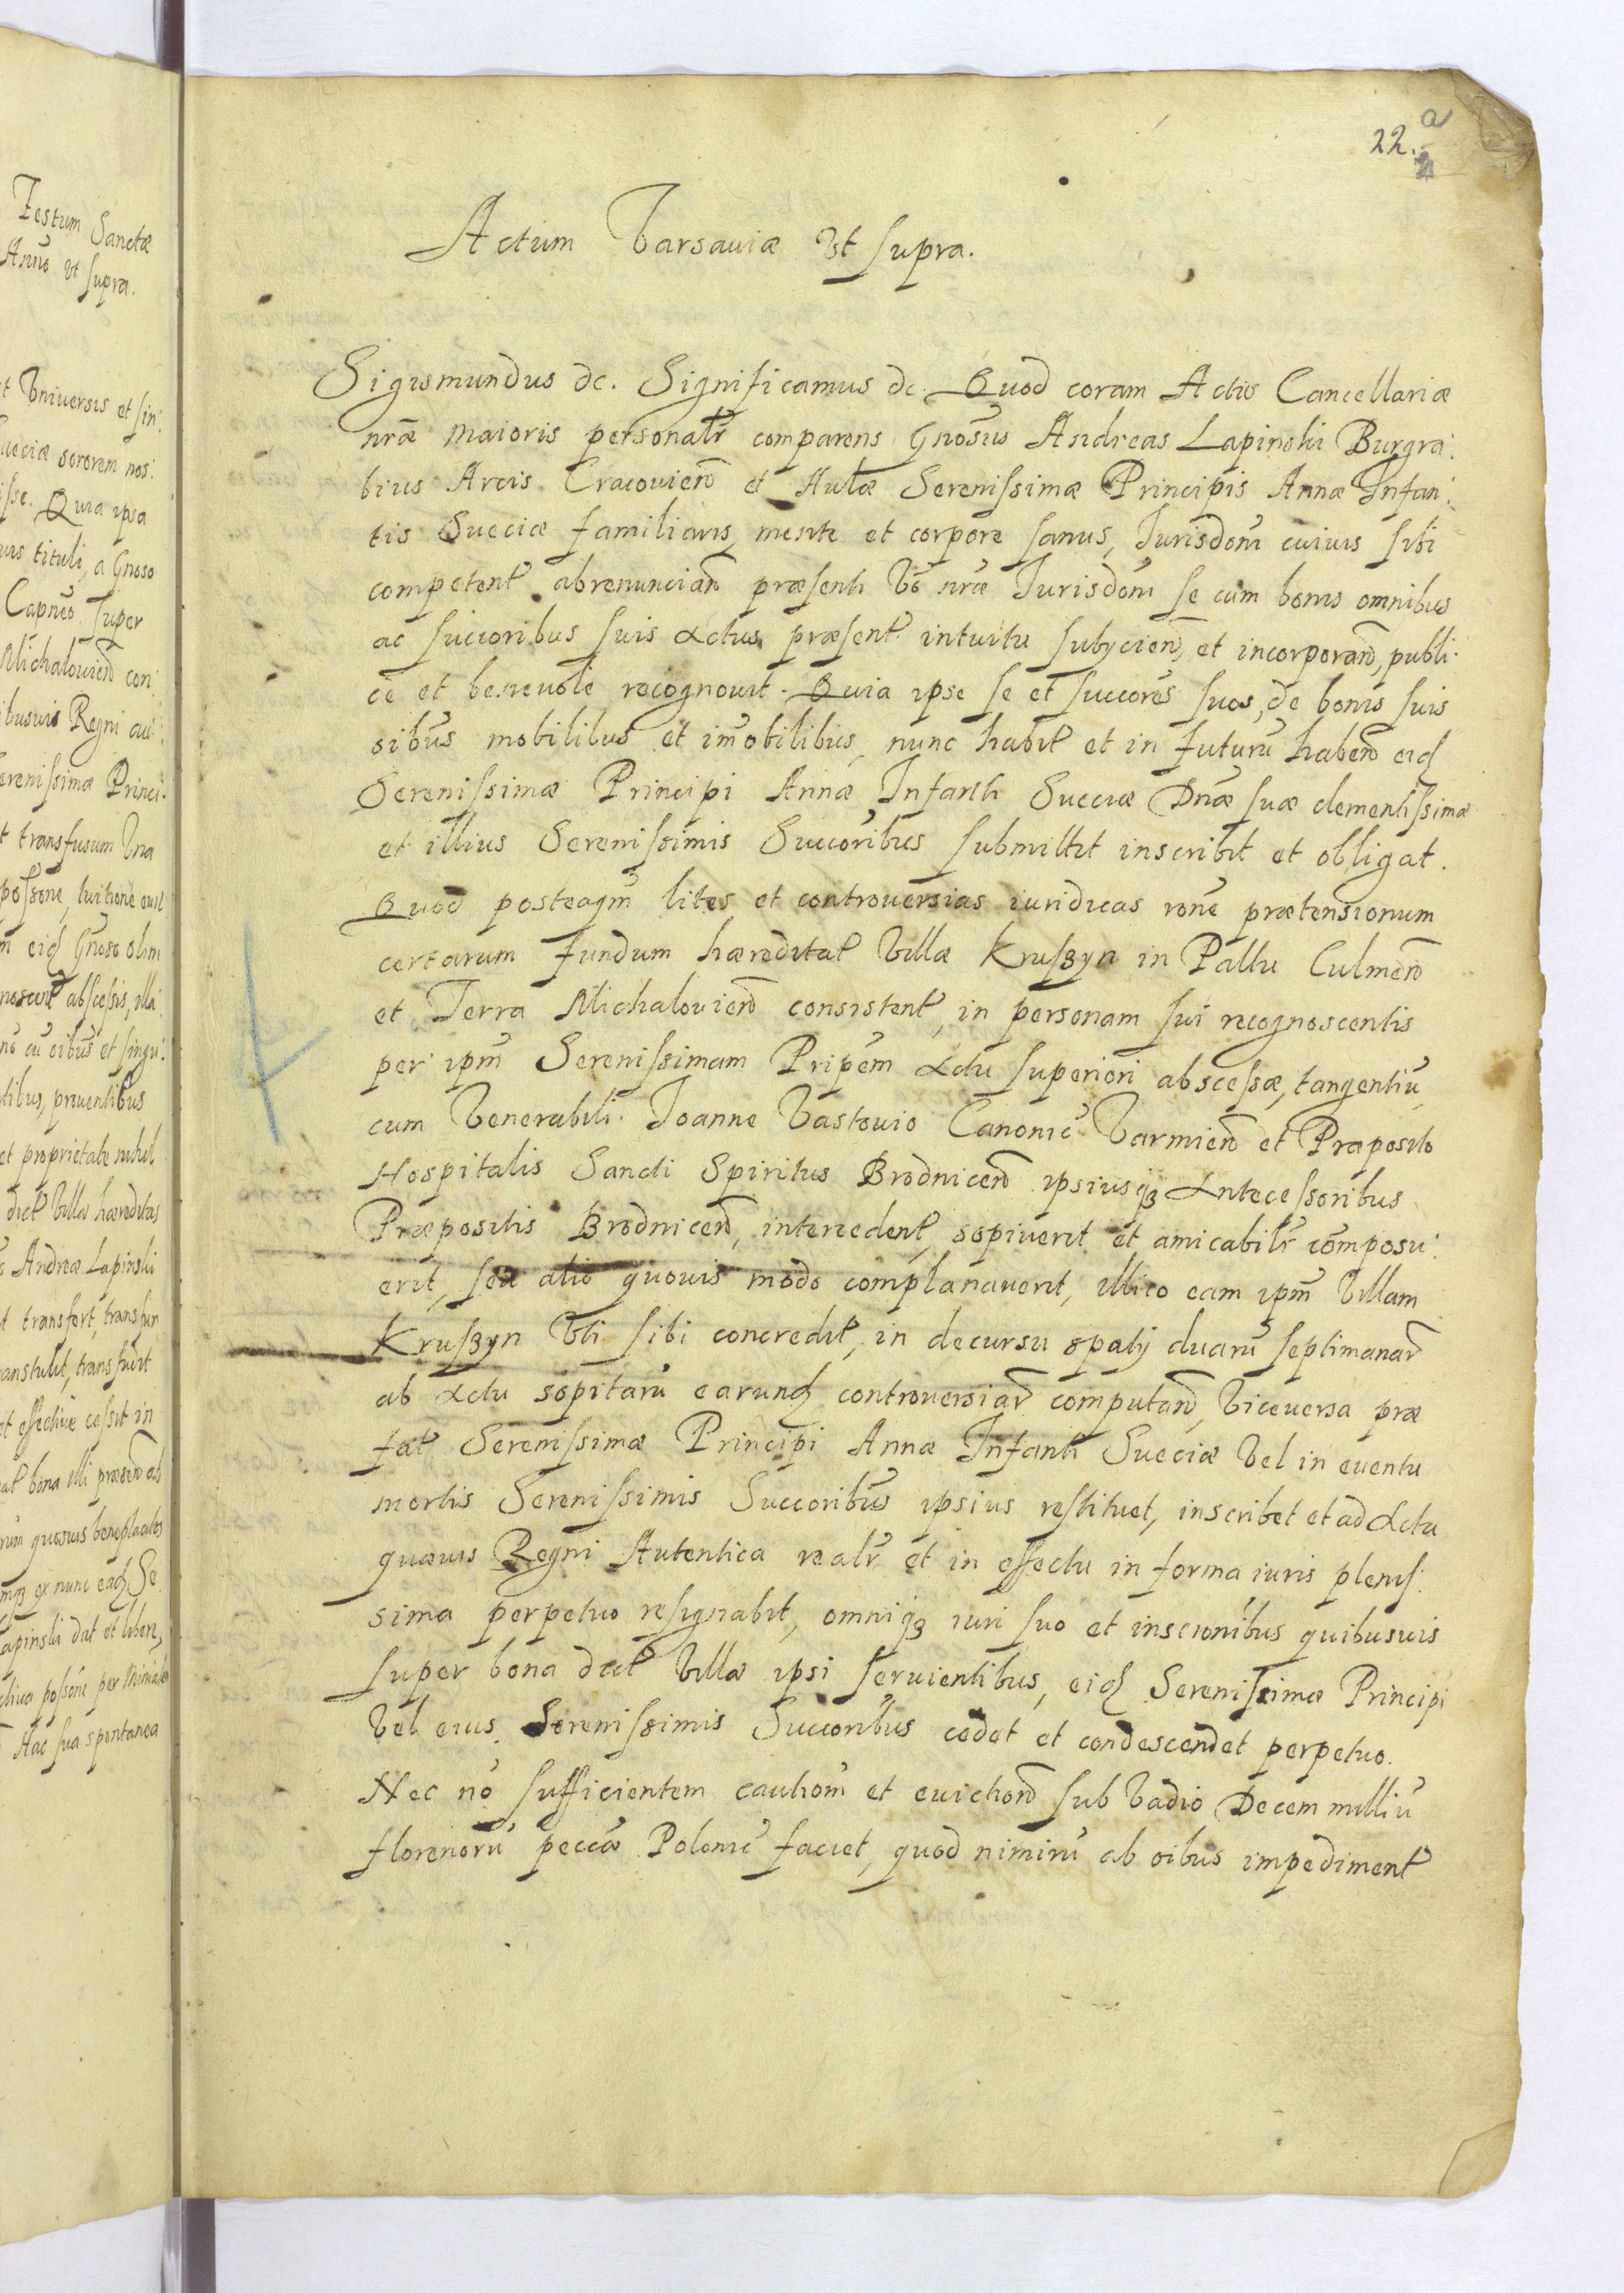 Festum Sanctæ
Anno vt supra.
et Vniuersis et sin:
Sueciæ sororem nos:
Quia ipsa
tituli, a Gnoso
Capneo super
Michalovien̄ con:
ibusuis Regni au:
Serenissimæ Princi:
et transfusum vna
possone, tuitione
eiq Gnoso olim
nō cū oībus et singu:
tibus, prouentibus
et proprietate nihil
dict Villæ hæreditas
Andreæ Lapinski
et transfert, transfun
transtulit, transfudit
et effectiue cessit in
bona illi præsen̄ ab
quosuis beneplacitos
ex nunc eaq Se
Lapinski dat et libere,
possōne per Minist
Hac sua spontanea
22. a
Actum Varsauiæ Vt supra.
Sigismundus &c. Significamus &c. Quod coram Actis Cancellariæ
nr̄æ maioris personalr̄ comparens Gnōsus Andreas Lapinski Burgra:
bius Arcis Cracouien̄ et Aulæ Serenissimæ Principis Annæ Infan:
tis Sueciæ familiaris, mente et corpore sanus, Iurisdōni cuiuis sibi
competent̄ abrenuncian̄ præsenti vō nr̄æ Iurisdōni se cum bonis omnibus
ac succoribus suis Actus præsent̄ intuitu subycien̄, et incorporan̄, publi:
cē et beneuole recognouit. Quia ipse se et succorēs suos, de bonis suis
oibūs mobilibus et im̄obilibus, nunc habit̄ et in futurū haben̄ eiq
Serenissimæ Principi Annæ Infanti Sueciæ Dnæ suæ clementissimæ
et illius Serenissimis Succoribus submittit inscribit et obligat.
Quod posteaqm̄ lites et controuersias iuridicas rōne prætensionum
certarum fundum hæreditat̄ Villæ Krusßyn in Pallu Culmen̄
et Terra Michalouien̄ consistent̄, in personam sui recognoscentis
per ipm̄ Serenissimam Pripēm Actu superiori abscessæ, tangentiū
cum Venerabili Ioanne Vastouio Canonic̄ Varmien̄ et Præposito
Hospitalis Sancti Spiritus Brodnicen̄ ipsiusqȝ Antecessoribus
Præpositis Brodnicen̄, intercedent̄, sopiuerit et amicabilr̄ cōmposu:
erit, seu alio quouis modo complanauerit, illico eam ipm̄ Villam
Krusßyn Vti sibi concredit̄, in decursu spatij duarū septimanar̄
ab Actu sopitarū earunq controuersiar̄ computan̄, Viceuersa præ
fat̄ Serenissimæ Principi Annæ Infanti Sueciæ Vel in euentu
mortis Serenissimis Succoribūs ipsius restituet, inscribet et ad Acta
quæuis Regni Autentica realr̄ et in effectu in forma iuris plenis:
sima perpetuo resignabit, omniqȝ iuri suo et inscrionibus quibusuis
super bona dict̄ Villæ ipsi seruientibus, eiq Serenissimæ Principi
Vel eius Serenissimis Succoribus cedet et condescendet perpetuo.
Nec nō sufficientem cautiom̄ et euictiom̄ sub Vadio Decem milliū
florenorū peccūæ Polonic̄ faciet, quod nimirū ab oibus impediment̄